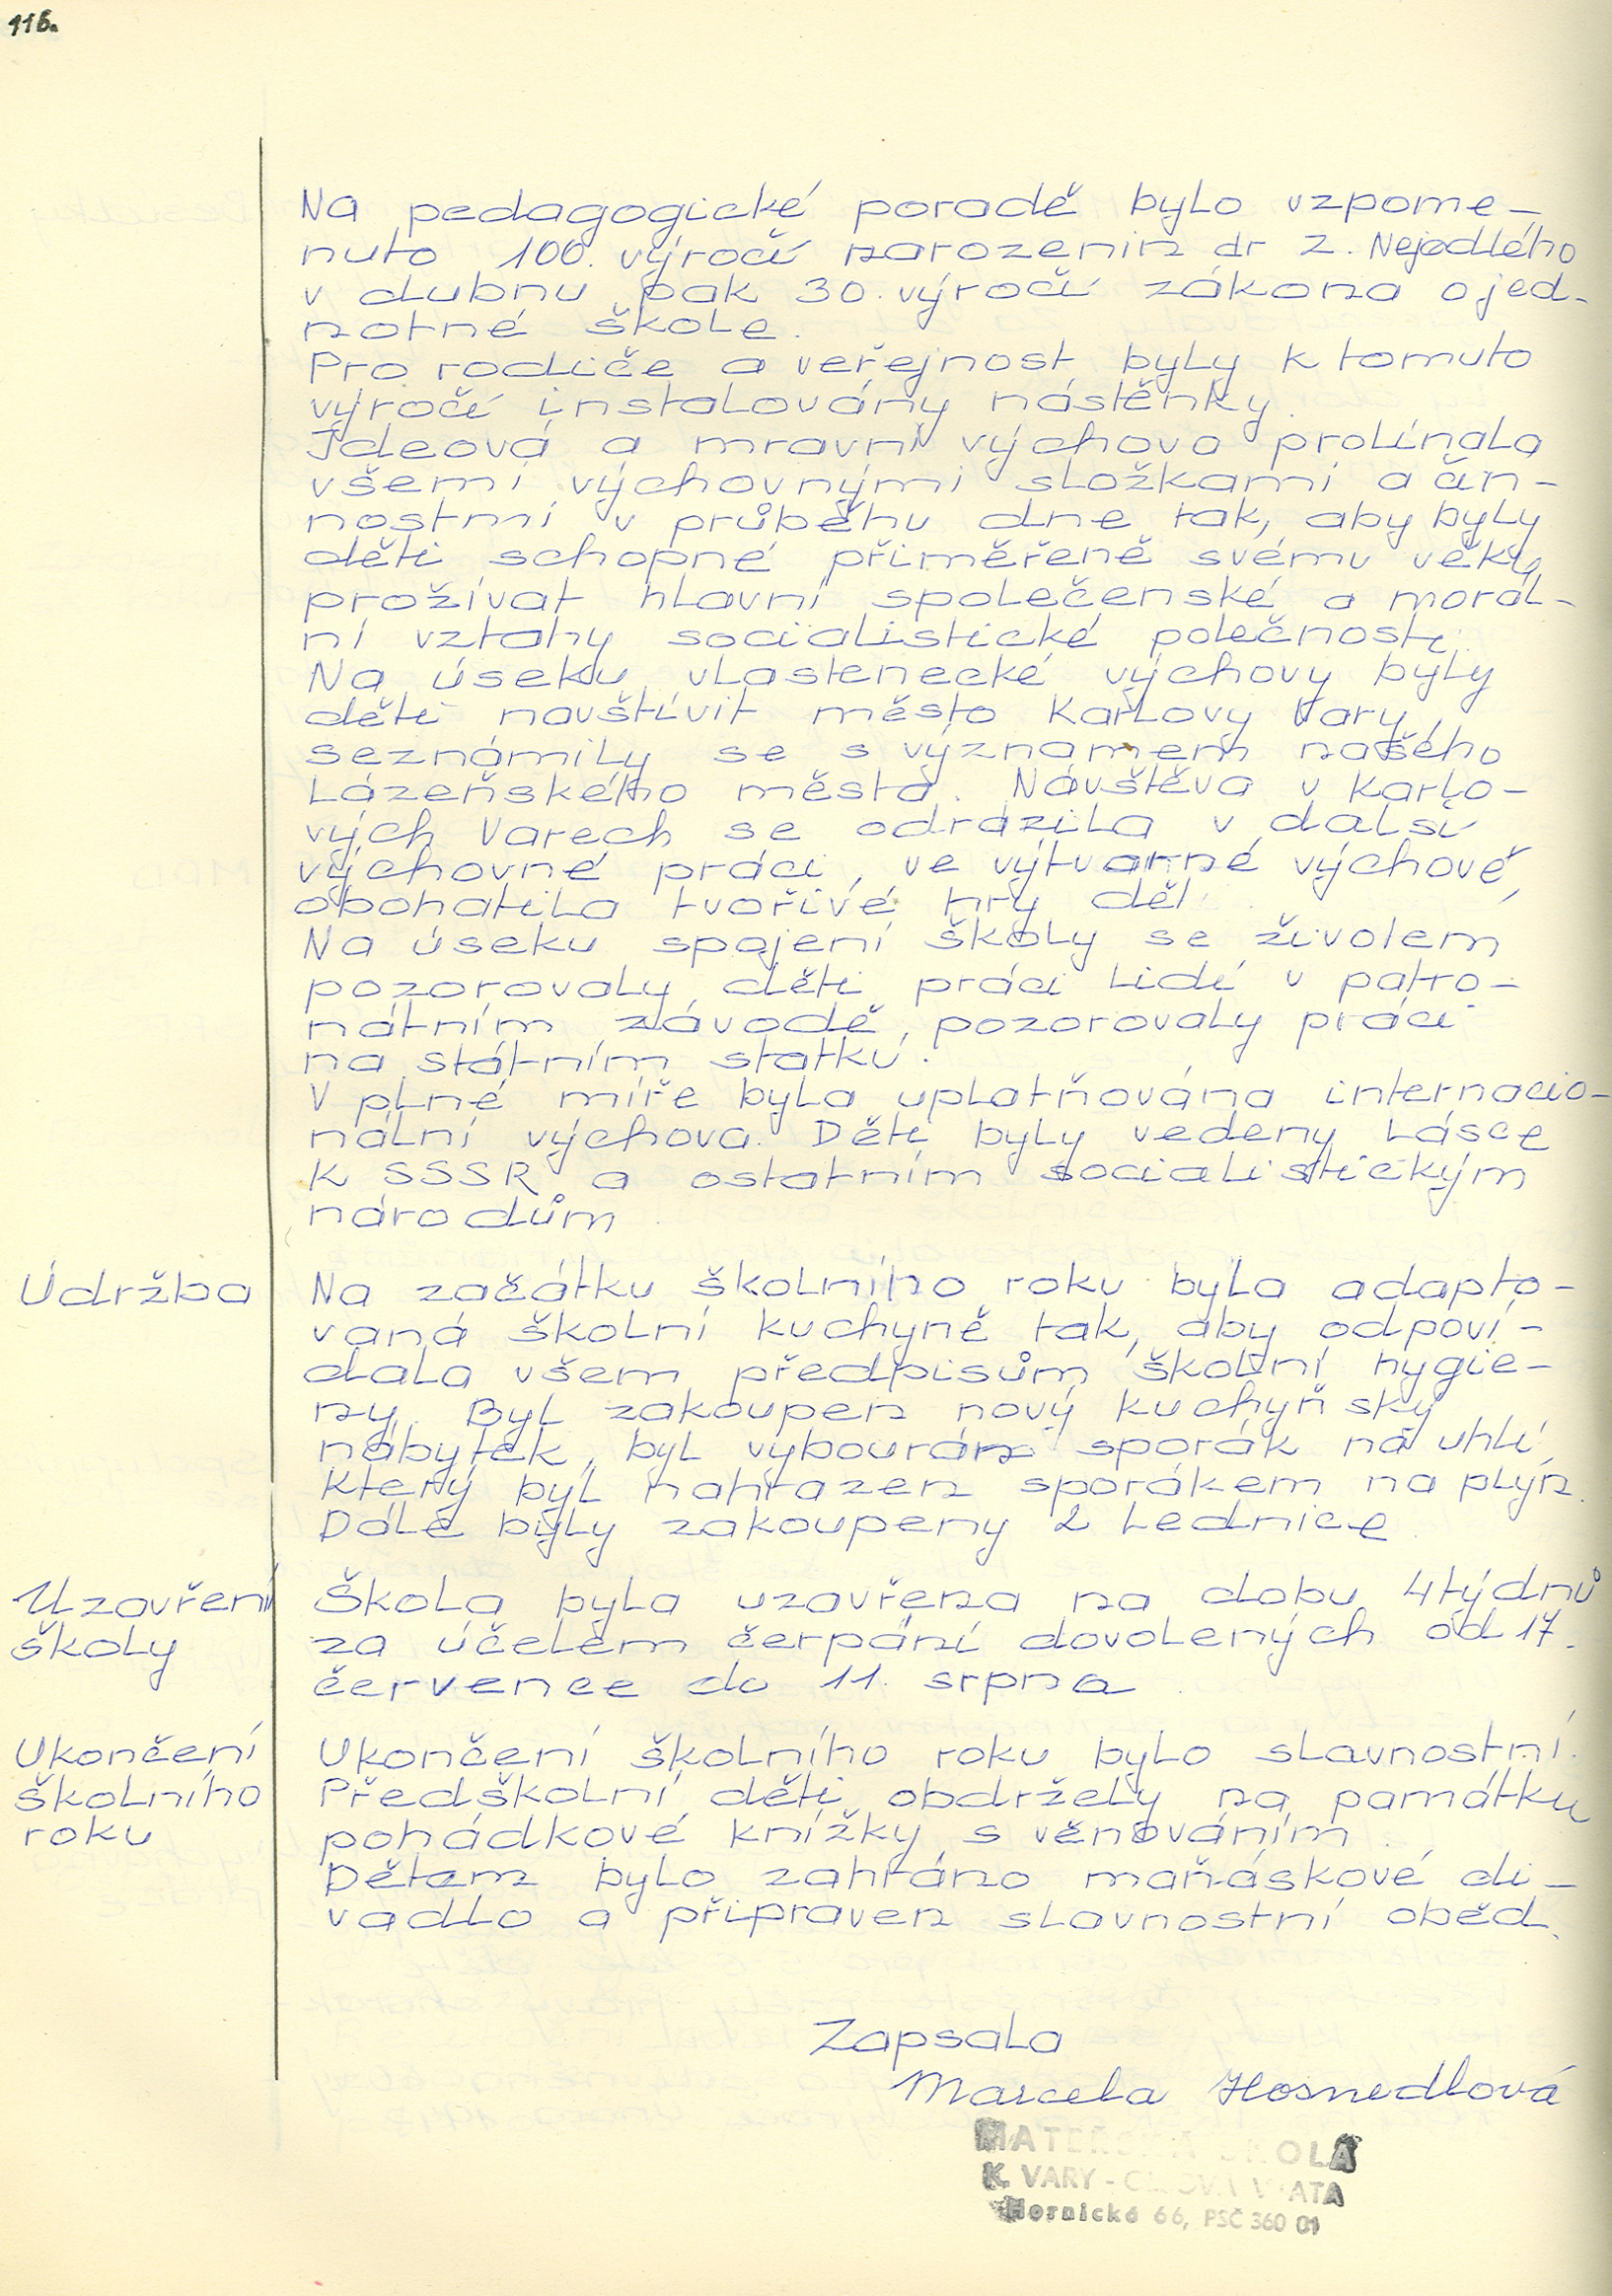 116.
Na pedagogické poradě bylo vzpome-
nuto 100. výročí narozenin dr Z. Nejedlého
v dubnu pak 30. výročí zákona o jed-
notné škole.
Pro rodiče a veřejnost byly k tomuto
výročí instalovány nástěnky.
Ideová a mravní výchova prolínala
všemi výchovnými složkami a čin-
nostmi v průběhu dne tak, aby byly
děti schopné přiměřeně svému věku
prožívat hlavní společenské a morál-
ní vztahy socialistické polečnosti.
Na úseku vlastenecké výchovy byly
děti navštívit město Karlovy Vary,
seznámily se s významem našeho
Lázeňského města. Návštěva v Karlo-
vých Varech se odrazila v další
výchovné práci, ve výtvarné výchově,
obohatila tvořivé hry dětí.
Na úseku spojení školy se životem
pozorovaly děti práci lidí v patro-
nátním závodě, pozorovaly práci
na státním statku.
V plné míře byla uplatňována internacio-
nální výchova. Děti byly vedeny lásce
k SSSR a ostatním socialistickým
národům.
Údržba
Na začátku školního roku byla adapto-
vaná školní kuchyně tak, aby odpoví-
dala všem předpisům školní hygie-
ny. Byl zakoupen nový kuchyňský
nábytek, byl vybourán sporák na uhlí,
který byl nahrazen sporákem na plyn.
Dále byly zakoupeny 2 lednice.
Uzavření
školy
Škola byla uzavřena na dobu 4 týdnů
za účelem čerpání dovolených od 17.
července do 11. srpna.
Ukončení
školního
roku
Ukončení školního roku bylo slavnostní.
Předškolní děti obdržely na památku
pohádkové knížky s věnováním.
Dětem bylo zahráno maňáskové di-
vadlo a připraven slavnostní oběd.
Zapsala
Marcela Hosnedlová
MATEŘSKÁ ŠKOLA
K. VARY -
Hornická 66, PSČ 360 01